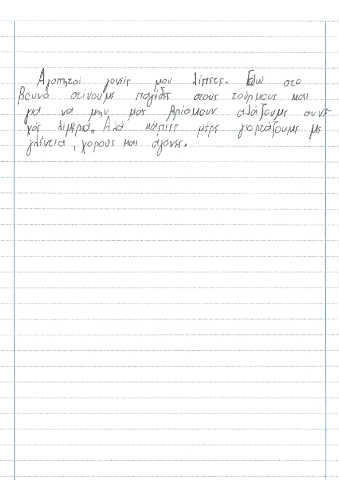 Αγαπητοί γονείς μου λίπετε. Εδω στο
βουνό στίνουμε παγίδες στους τούρκους και
για να μην μας πρίασουν αλάζουμε συνέ
χός λιμεριά. Αλά κάπιες μέρε γιορτάζουμε με
γλέντια, χορους και αγόνες.